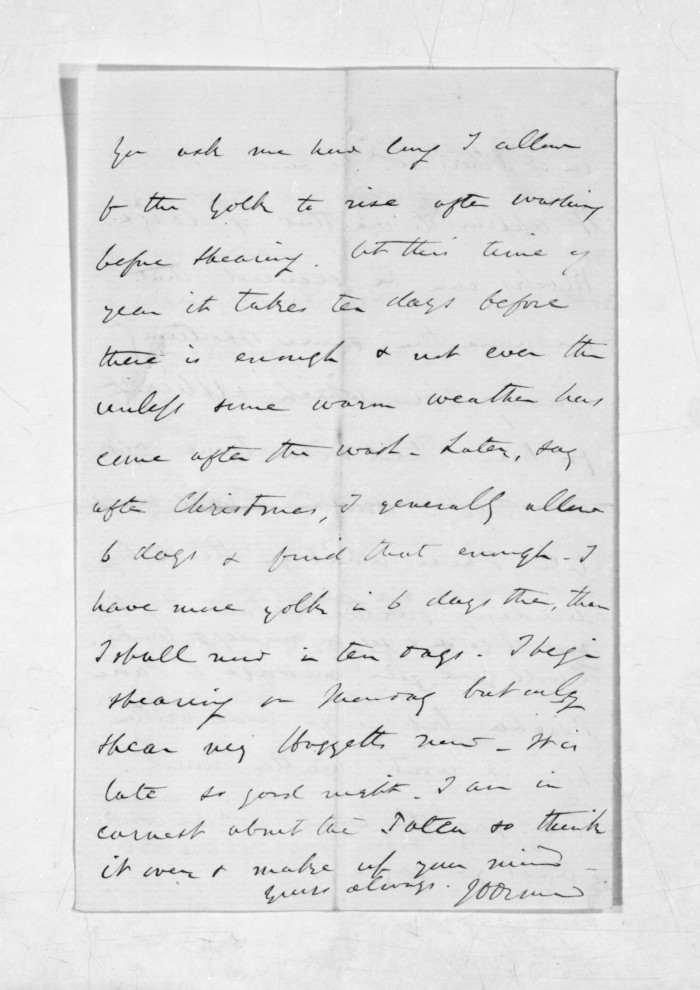 You ask me how long I allow
for the yolk to rise after washing
before shearing. At this time of
year it takes ten days before
there is enough & not even then
unless some warm weather has
come after the wash - Later, say
after Christmas, I generally allow
6 days & find that enough - I
have more yolk in 6 days then, than
I shall now in ten days. I begin
shearing on Monday but only
shear my Hoggetts now - It is
late so good night - I am in
earnest about the so think
it over & make up your mind -
Yours always.